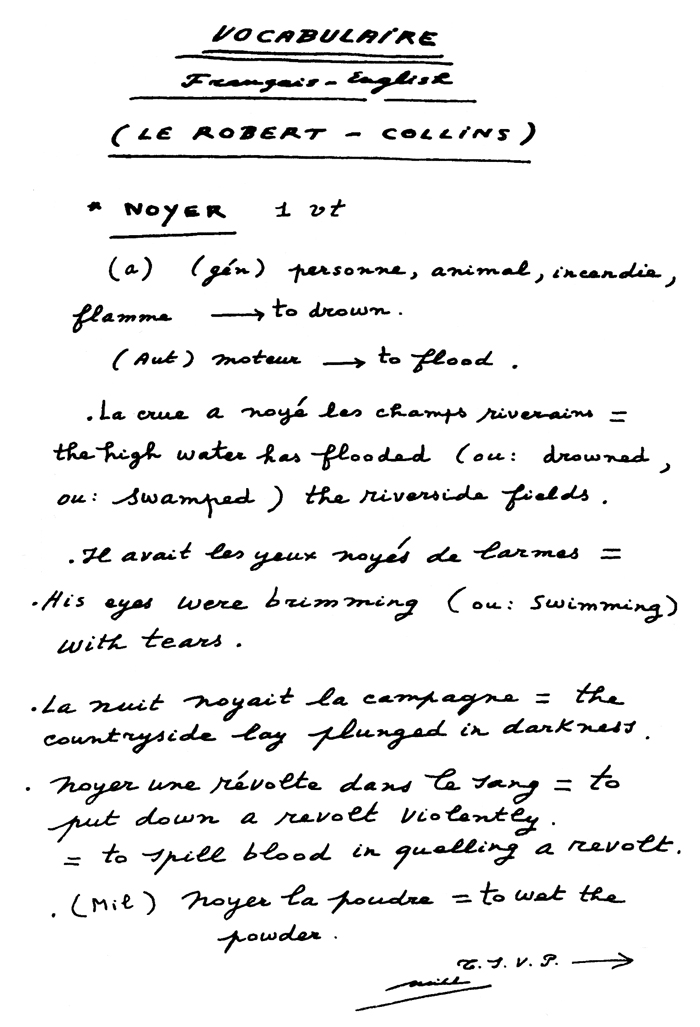 VOCABULAIRE
Français - English
(LE ROBERT - COLLINS)
* NOYER 1 vt
(a) (gén) personne, animal, incendie,
flamme → to drown.
(Aut) moteur → to flood.
. La crue a noyé les champs riverains =
the high water has flooded (ou: drowned,
ou: swamped) the riverside fields.
. Il avait les yeux noyés de larmes =
. His eyes were brimming (ou: swimming)
with tears.
. La nuit noyait la campagne = the
countryside lay plunged in darkness.
. noyer une révolte dans le sang = to
put down a revolt violently.
= to spill blood in quelling a revolt.
. (Mil) noyer la poudre = to wet the
powder.
T.S.V.P. →